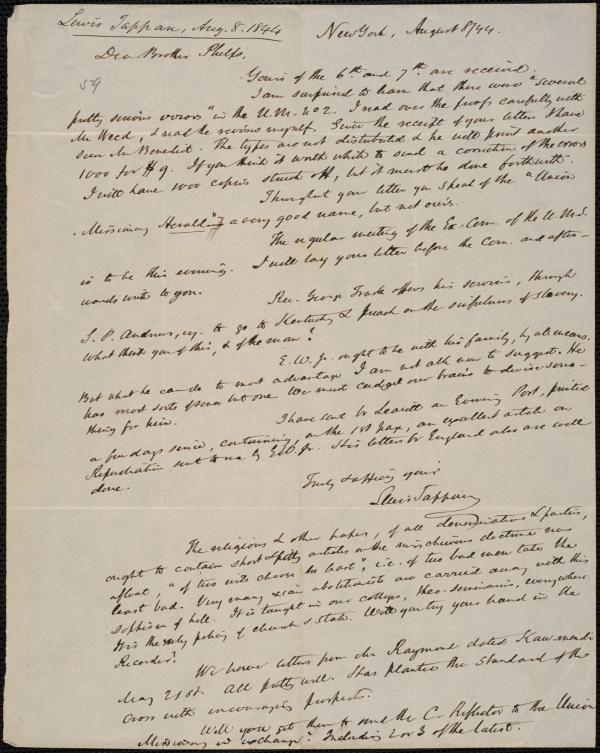 Lewis Tappan, Aug. 8. 1844
New York, August 8/44.
Dear Brother Phelps,
59
Yours of the 6th and 7th are received.
I am surprised to learn that there were "several
pretty serious errors" in the U.M. No 2. I read over the proofs carefully with
Mr Weed, & read the revises myself. Since the receipt of your letters I have
seen Mr Benedict. The types are not distributed & he will print another
1000 for $9. If you think it worth while to send a correction of the errors
I will have 1000 copies struck off, but it must be done forthwith.
Throughout your letter you speak of the "Union
Missionary Herald" a very good name, but not ours.
The regular meeting of the Ex. Com. of the U.M.S.
is to be this evening. I will lay your letter before the Com. and after-
wards write to you.
Rev. George offers his services, through
S. P. Andrews, to go to Kentucky & preach on the sinfulness of slavery.
What think you of this, & of the man?
E. W. Jr. ought to be with his family, by all means.
But what he can do to most advantage I am not able now to suggest. He
has most sorts of sense but one. We must cudgel our brains to devise some-
thing for him.
I have sent br Leavitt an Evening Post, printed
a few days since, containing, on the 1st page, an excellent article on
Repudiation sent to me by E.W. Jr. His letters fr England also are well
done.
Truly & affec'y yours
Lewis Tappan
The religious & other papers, of all denominations & parties,
ought to contain short & pithy articles on the mischievous doctrine now
afloat, "of two evils choose the least", i.e. of two bad men take the
least bad. Very many abolitionists are carried away with this
sophism of hell. It is taught in our colleges, theo. seminaries, everywhere.
It is the policy of church & state. Will you try your hand in the
Recorder?
We have letters from Mr Raymond dated Kaw-mendi
May 21st. All pretty well. Has planted the standard of the
cross with encouraging prospects.
Will you get them to send the C. Reflector to the Union
Missionary in exchange? Including 2 or 3 of the latest.